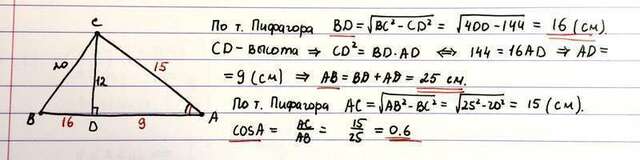 C
20
15
12
B
16
D
9
A
По т. Пифагора BD = √BC² - CD² = √400 - 144 = 16 (см).
CD - высота ⇒ CD² = BD · AD ⇔ 144 = 16AD ⇒ AD =
= 9 (см) ⇒ AB = BD + AD = 25 см.
По т. Пифагора AC = √AB² - BC² = √25² - 20² = 15 (см).
cosA = AC/AB = 15/25 = 0.6